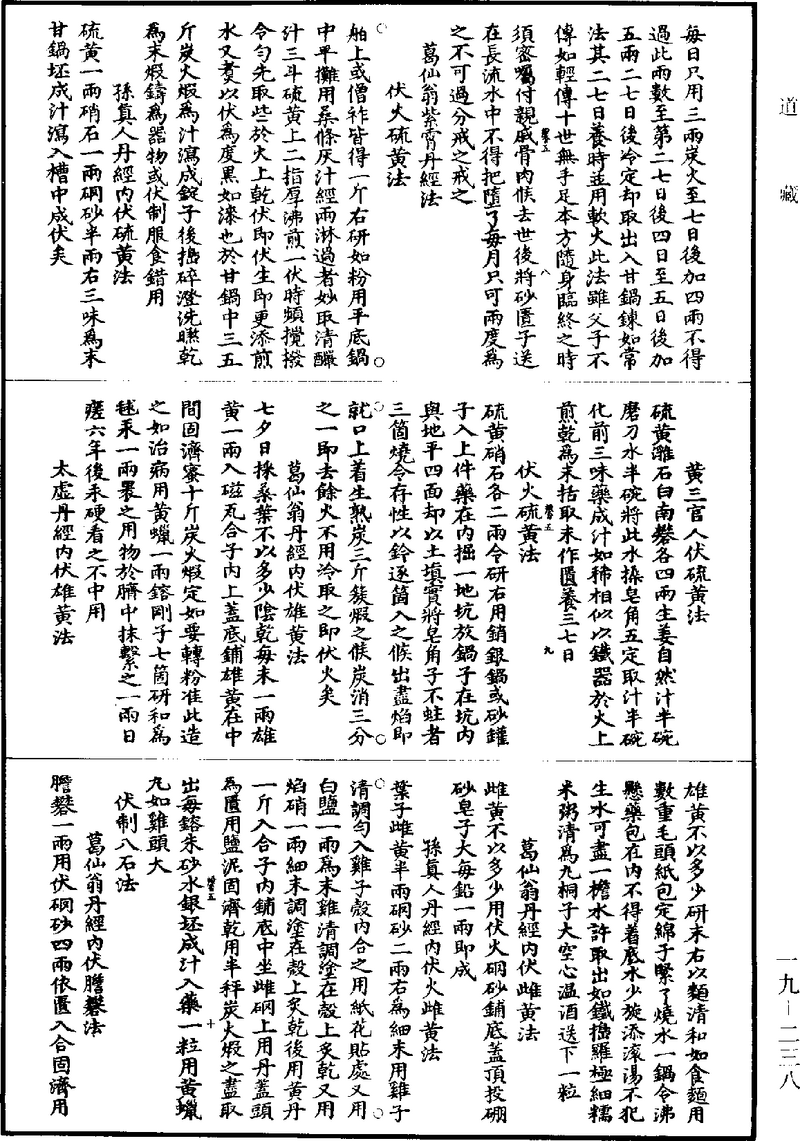 道藏
一九－二三八
每日只用三兩炭火至七日後加四兩不得
過此兩數至第二七日後四日至五日後加
五兩二七日後冷定却取出入甘鍋鍊如常
法其二七日養時並用軟火此法雖父子不
傳如輕傳十世無手足本方隨身臨終之時
須密囑付親戚骨肉候去世後將砂匱子送
在長流水中不得把隨了每月只可兩度為
之不可過分戒之戒之
葛仙翁紫霄丹經法
伏火硫黄法
舶上或僧祚皆得一斤右研如粉用平底鍋
中平攤用桑條灰汁經兩淋過者妙取清釅
汁三斗硫黄上二指厚沸煎一伏時頻攪撥
令勻先取些於火上乾伏即伏生即更添煎
水又煑以伏為度黑如漆也於甘鍋中三五
斤炭火煅為汁瀉成錠子後擣碎澄洗曬乾
為末煅鑄為器物或伏制服食錯用
孫真人丹經內伏硫黄法
硫黄一兩硝石一兩硇砂半兩右三味為末
甘鍋坯成汁瀉入槽中成伏矣
黄三官人伏硫黄法
硫黄灕石白南礬各四兩生姜自然汁半碗
磨刀水半碗將此水搡皂角五定取汁半碗
化前三味藥成汁如稀相似以鐵器於火上
煎乾為末括取末作匱養三七日
伏火硫黄法
硫黄硝石各二兩令研右用銷銀鍋或砂鑵
子入上件藥在內掘一地坑放鍋子在坑內
與地平四面却以土填實將皂角子不蛀者
三箇燒令存性以鈐逐箇入之候出盡焰即
就口上着生熟炭三斤簇煅之候炭消三分
之一即去餘火不用冷取之即伏火矣
葛仙翁丹經內伏雄黄法
七夕日採桑葉不以多少陰乾每末一兩雄
黄一兩入磁瓦合子內上蓋底鋪雄黄在中
間固濟蜜十斤炭火煅定如要轉粉准此造
之如治病用黄蠟一兩鎔剛子七箇研和為
毬汞一兩褁之用物於臍中抹繫之一兩日
瘥六年後汞硬看之不中用
太虛丹經內伏雄黄法
雄黄不以多少研末右以麵清和如食麵用
數重毛頭紙包定綿子繫了燒水一鍋令沸
懸藥包在內不得着底水少旋添滾湯不犯
生水可盡一檐水許取出如鐵擣羅極細糯
米粥清為丸桐子大空心温酒送下一粒
葛仙翁丹經內伏雌黄法
雌黄不以多少用伏火硇砂鋪底蓋頂投硼
砂皂子大每鉛一兩即成
孫真人丹經內伏火雌黄法
葉子雌黄半兩硇砂二兩右為細末用雞子
清調勻入雞子殼內合之用紙花貼處又用
白鹽一兩為末雞清調塗在殼上炙乾又用
焰硝一兩細末調塗在殼上炙乾後用黄丹
一斤入合子內鋪底中坐雌硇上用丹蓋頭
為匱用鹽泥固濟乾用半秤炭火煅之盡取
出每鎔朱砂水銀坯成汁入藥一粒用黄蠟
丸如雞頭大
伏制八石法
葛仙翁丹經內伏膽礬法
膽礬一兩用伏硇砂四兩依匱入合固濟用